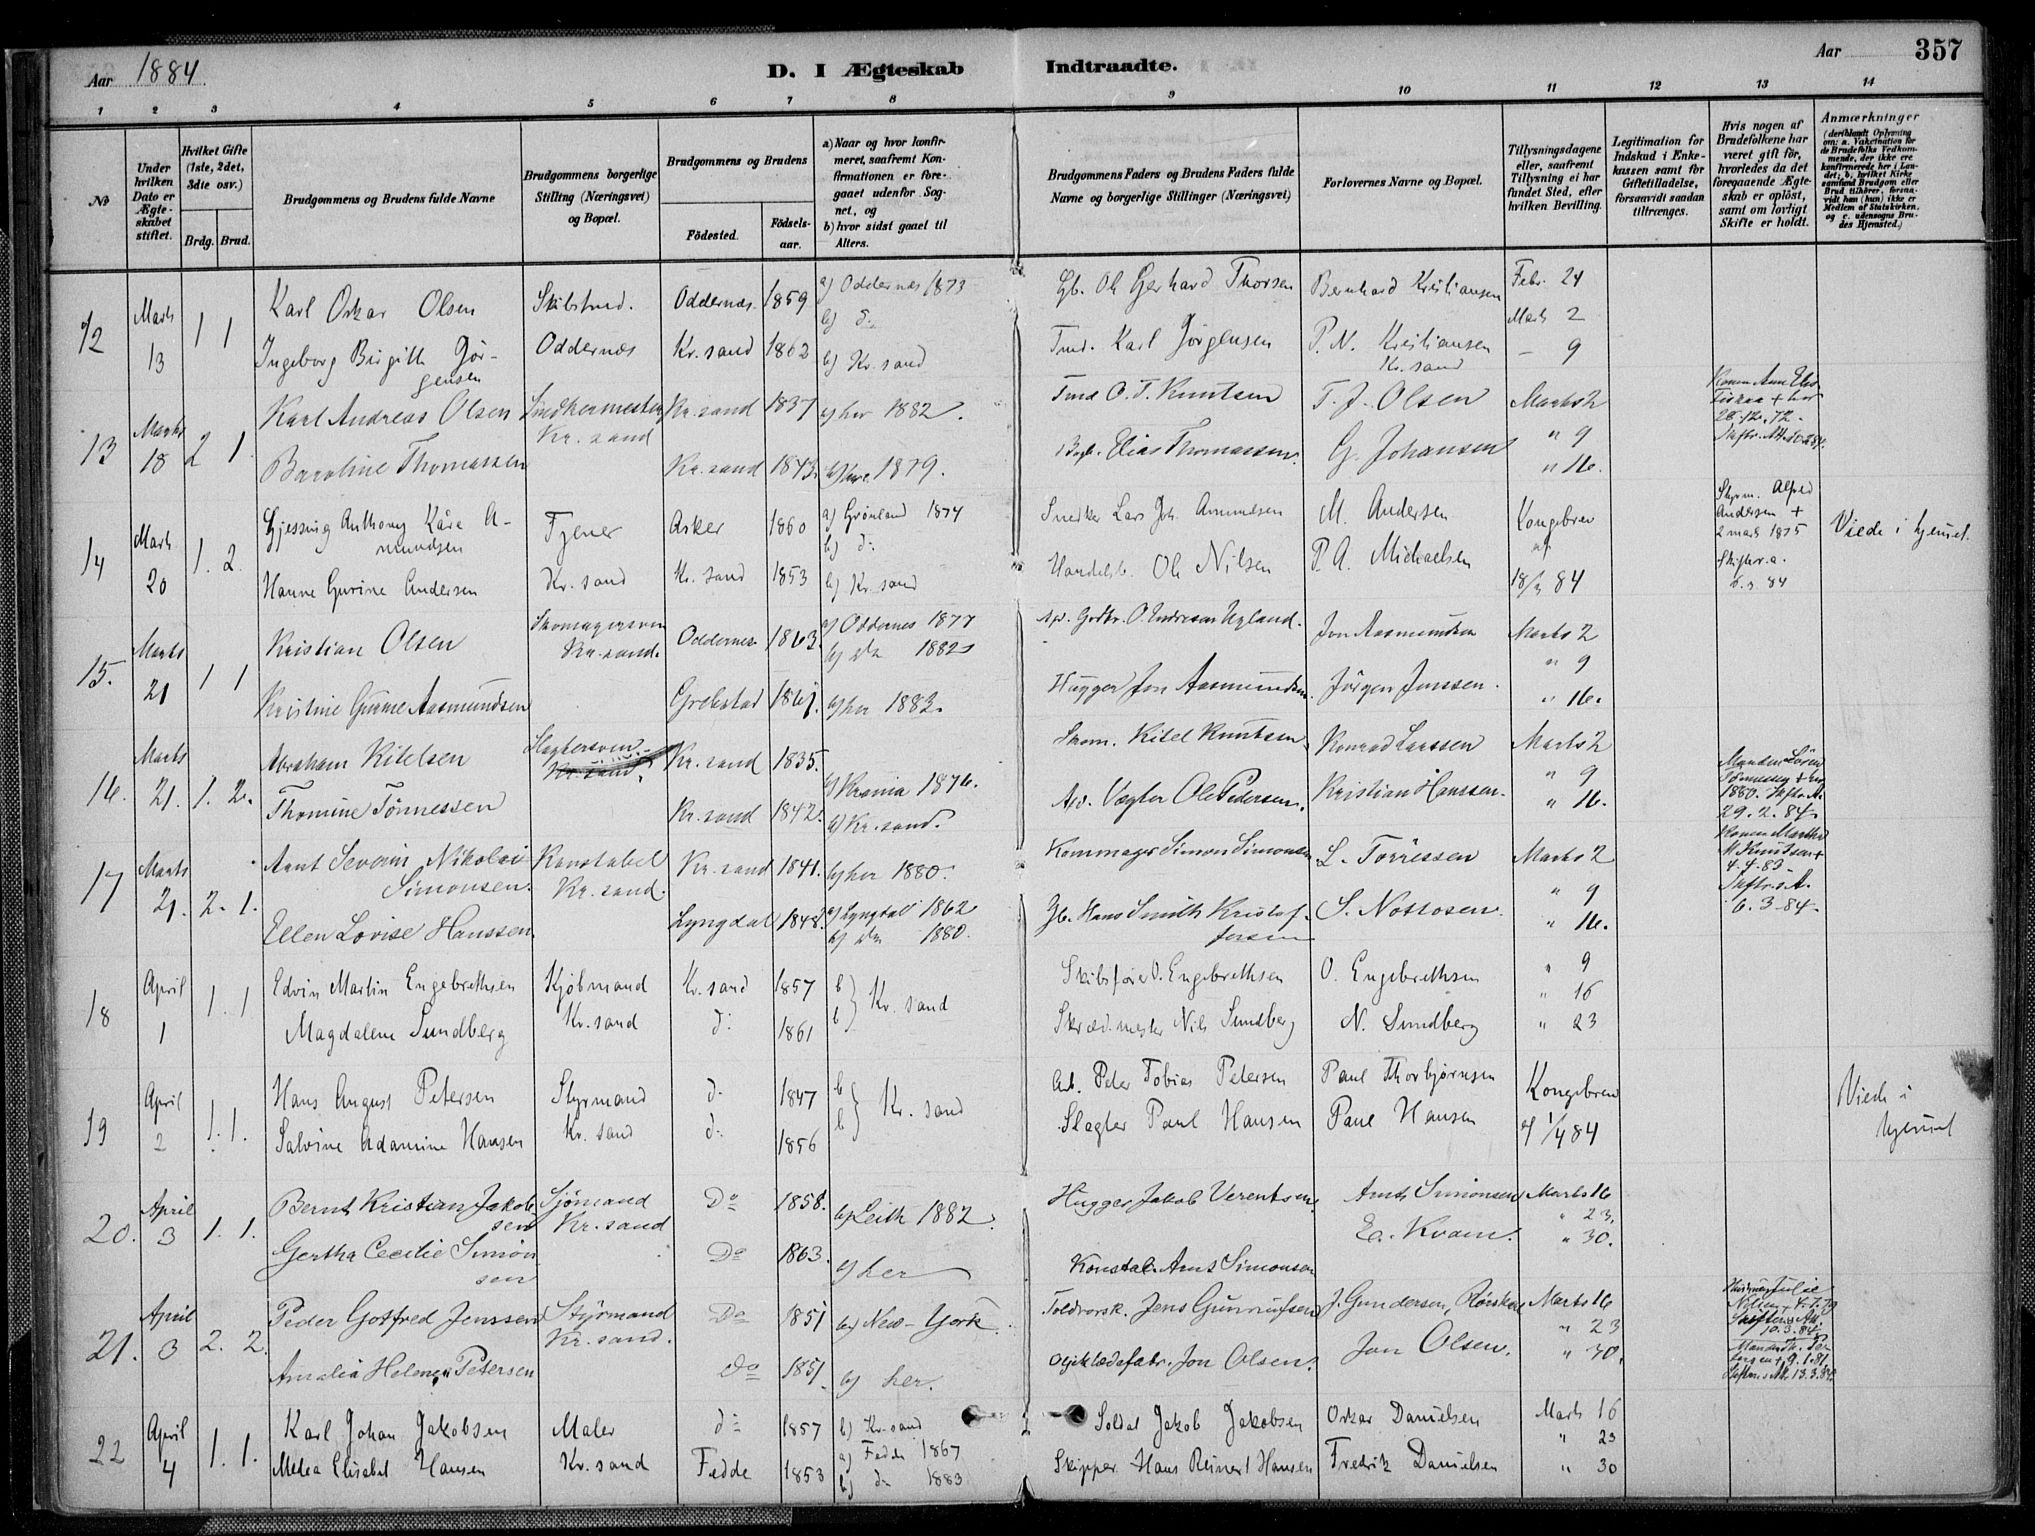 Aar 1884.
D. I Ægteskab Indtraadte.
Aar 357
1 2 3 4 5 6 7 8 9 10 11 12 13 14
№
Under hvilken Dato er Ægteskabet stiftet.
Hvilket Gifte (1ste, 2det, 3die osv.)
Brdg. Brud.
Brudgommens og Brudens fulde Navne
Brudgommens borgerlige Stilling (Næringsvei) og Bopæl.
Brudgommens og Brudens
Födested. Födselsaar.
a) Naar og hvor konfirmeret, saafremt Konfirmationen er foregaaet udenfor Sognet, og
b) hvor sidst gaaet til Alters.
Brudgommens Faders og Brudens Faders fulde Navne og borgerlige Stillinger (Næringsvei)
Forlovernes Navne og Bopæl.
Tillysningsdagene eller, saafremt Tillysning ei har fundet Sted, efter hvilken Bevilling.
Legitimation for Indskud i Enkekassen samt for Giftetilladelse, forsaavidt saadan tiltrænges.
Hvis nogen af Brudefolkene har været gift för, hvorledes da det foregaaende Ægteskab er oplöst, samt om lovligt Skifte er holdt.
Anmærkninger (deriblandt Oplysning om: a. Vakcination for de Brudefolks Vedkommende, der ikke ere konfirmerede her i Landet; b. hvilket Kirkesamfund Brudgom eller Brud tilhörer, forsaavidt han (hun) ikke er Medlem af Statskirken, og c. udensogns Brudes Hjemsted.)
12 Marts 13 1 1 Karl Oskar Olsen Skibstmd. Oddernæs 1859 a) Oddernæs 1873 b) do Gb. Ole Gerhard Thorsen Bernhard Kristiansen Febr. 24
Ingeborg Birgith Jörgensen Oddernæs Kr.sand 1862 b) Kr.sand Tmd. Karl Jörgensen P. N. Kristiansen Kr.sand Marts 2 – 9
13 Marts 18 2 1 Karl Andreas Olsen Snedkermester Kr.sand Kr.sand 1837 b) her 1882. Tmd O. T. Knutsen T. J. Olsen Marts 2
Baroline Thomassen Kr.sand 1843. b) her 1879. Elias Thomassen. G. Johansen " 9 " 16.
14 Marts 20 1. 2. Gjessing Anthony Kåre Amundsen Tjener Asker 1860 a) Grönland 1874 b) do Snedker Lars Joh. Amundsen M. Andersen Kongebrev Alfred Andersen + 2 marts 1875 Viede i hjemmet.
Hanne Gurine Andersen Kr.sand Kr.sand 1853 b) Kr.sand Handelsb. Ole Nilsen P. A. Michaelsen af 18/3 84
15. Marts 21 1 1 Kristian Olsen Skomagersvend Kr.sand. Oddernæs 1863. a) Oddernes 1877 b) do 1882 Jon Aasmundsen Marts 2
Kristine Gurine Aasmundsen Grebstad 1861. b) her 1883. Hugger Jon Aasmundsen. Jörgen Jenssen. " 9 " 16.
16. Marts 21. 1. 2. Abraham Kitelsen Slagtersvend Kr.sand. Kr.sand 1835. b) Krania 1876. Skom. Kitel Knutsen Konrad Larssen Marts 2
Thomine Tönnessen Kr.sand 1842. b) Kr.sand. Vægter Ole Pedersen. Kristian Hanssen. " 9 " 16. 1880. 29.2.84
17 Marts 21. 2. 1. Arnt Severin Nikolai Simonsen. Konstabel Kr.sand. Kr.sand 1841. b) her 1880. Simon Simonsen L. Törressen Marts 2
Ellen Lovise Hanssen. Lyngdal 1848. a) Lyngdal 1862 b) do 1880. Gb. Hans Smith Kristofforsen S. Nottosen. " 9 " 16. 4.4.83 6.3.84.
18 April 1 1. 1 Edvin Martin Engebrethsen Kjöbmand Kr.sand 1857 b Kr.sand Skibsförer O. Engebrethsen O. Engebrethsen " 9
Magdalene Sundberg Kr.sand do 1861 b Skræd.mester Nils Sundberg N. Sundberg " 16 " 23
19 April 2 1. 1. Hans August Petersen Styrmand do 1847 b Kr.sand Arb. Peter Tobias Petersen Paul Thorbjørnsen Kongebrev Viede i hjemmet
Salvine Adamine Hansen Kr.sand do 1856 b Slagter Paul Hansen Paul Hansen af 1/4 84
20. April 3 1. 1. Bernt Kristian Jakobsen Sjömand Kr.sand Do 1858. b) Leith 1882. Hugger Jakob Verentsen. Arnt Simonsen Marts 16
Gertha Cecilie Simonsen Do 1863. b) her Konstab. Arnt Simonsen Ea. Kvam. " 23. " 30.
21. April 3 2. 2. Peder Gotfred Jenssen Styrmand Kr.sand. Do 1851 b) New-York. Toldrorsk. Jens Gunnufsen J. Gundersen, Marts 16 10.3.84
Amalia Helene Petersen Do 1851. b) her. Oljeklædefabr. Jon Olsen. Jon Olsen. " 23 " 30. 9.1.81. 13.3.84
22 April 4 1. 1. Karl Johan Jakobsen Maler do 1857 b) Kr.sand Soldat Jakob Jakobsen Oskar Danielsen Marts 16
Melea Elisabet Hansen Kr.sand Fedde 1853 a) Fedde 1867 b) do 1883 Skipper Hans Reinert Hansen Fredrik Danielsen " 23 " 30